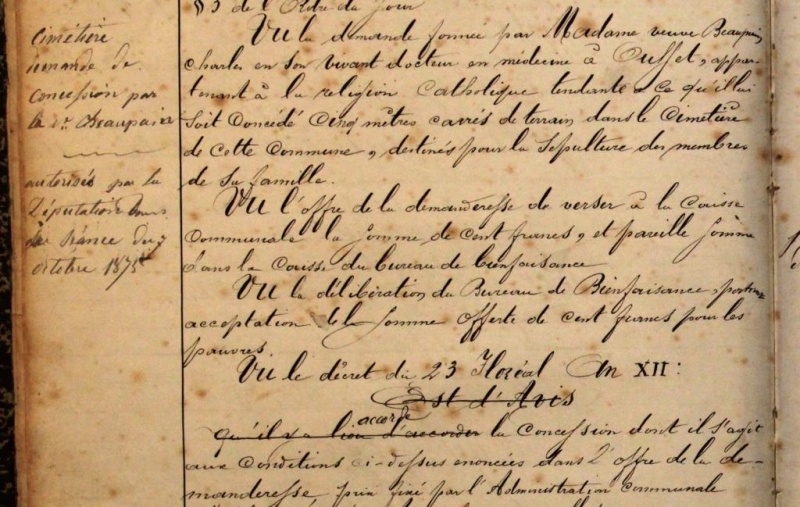 §3 de l'Ordre du Jour
Cimetière
demande de
concession par
la Dr Beaupain
autorisée par la
Députation
séance du 7
octobre 1875
Vu la demande formée par Madame veuve Beaupain,
Charles en son vivant docteur en médecine à Ouffet, appar-
tenant à la religion Catholique tendante à ce qu'il lui
soit concédé cinq mètres carrés de terrain dans le Cimetière
de cette Commune, destinés pour la sépulture des membres
de sa famille.
Vu l'offre de la demanderesse de verser à la Caisse
communale la somme de cent francs, et pareille somme
dans la Caisse du bureau de bienfaisance
Vu la délibération du Bureau de Bienfaisance, portant
acceptation de la somme offerte de cent francs pour les
pauvres.
Vu le décret du 23 Floréal An XII:
Est d'Avis
accorde
qu'il y a lieu d'accorder la Concession dont il s'agit
aux conditions ci-dessus énoncées dans l'offre de la de-
manderesse, prix fixé par l'Administration communale